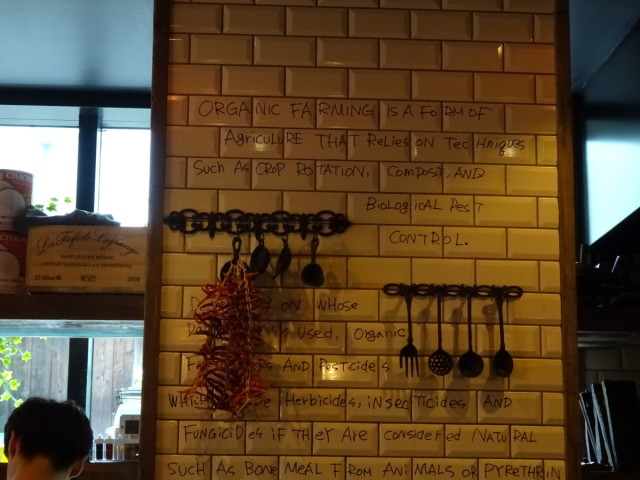 ORGANIC FARMING IS A FORM OF
AGRICULURE THAT RELIES ON TECHNIQUES
SUCH AS CROP ROTATION, COMPOST, AND
BIOLOGICAL PEST
CONTROL.
ON WHOSE
USED, ORGANIC
AND PESTICIDES
HERBICIDES, INSECTICIDES AND
FUNGICIDES IF THEY ARE CONSIDERED NATURAL
SUCH AS BONE MEAL FROM ANIMALS OR PYRETHRIN